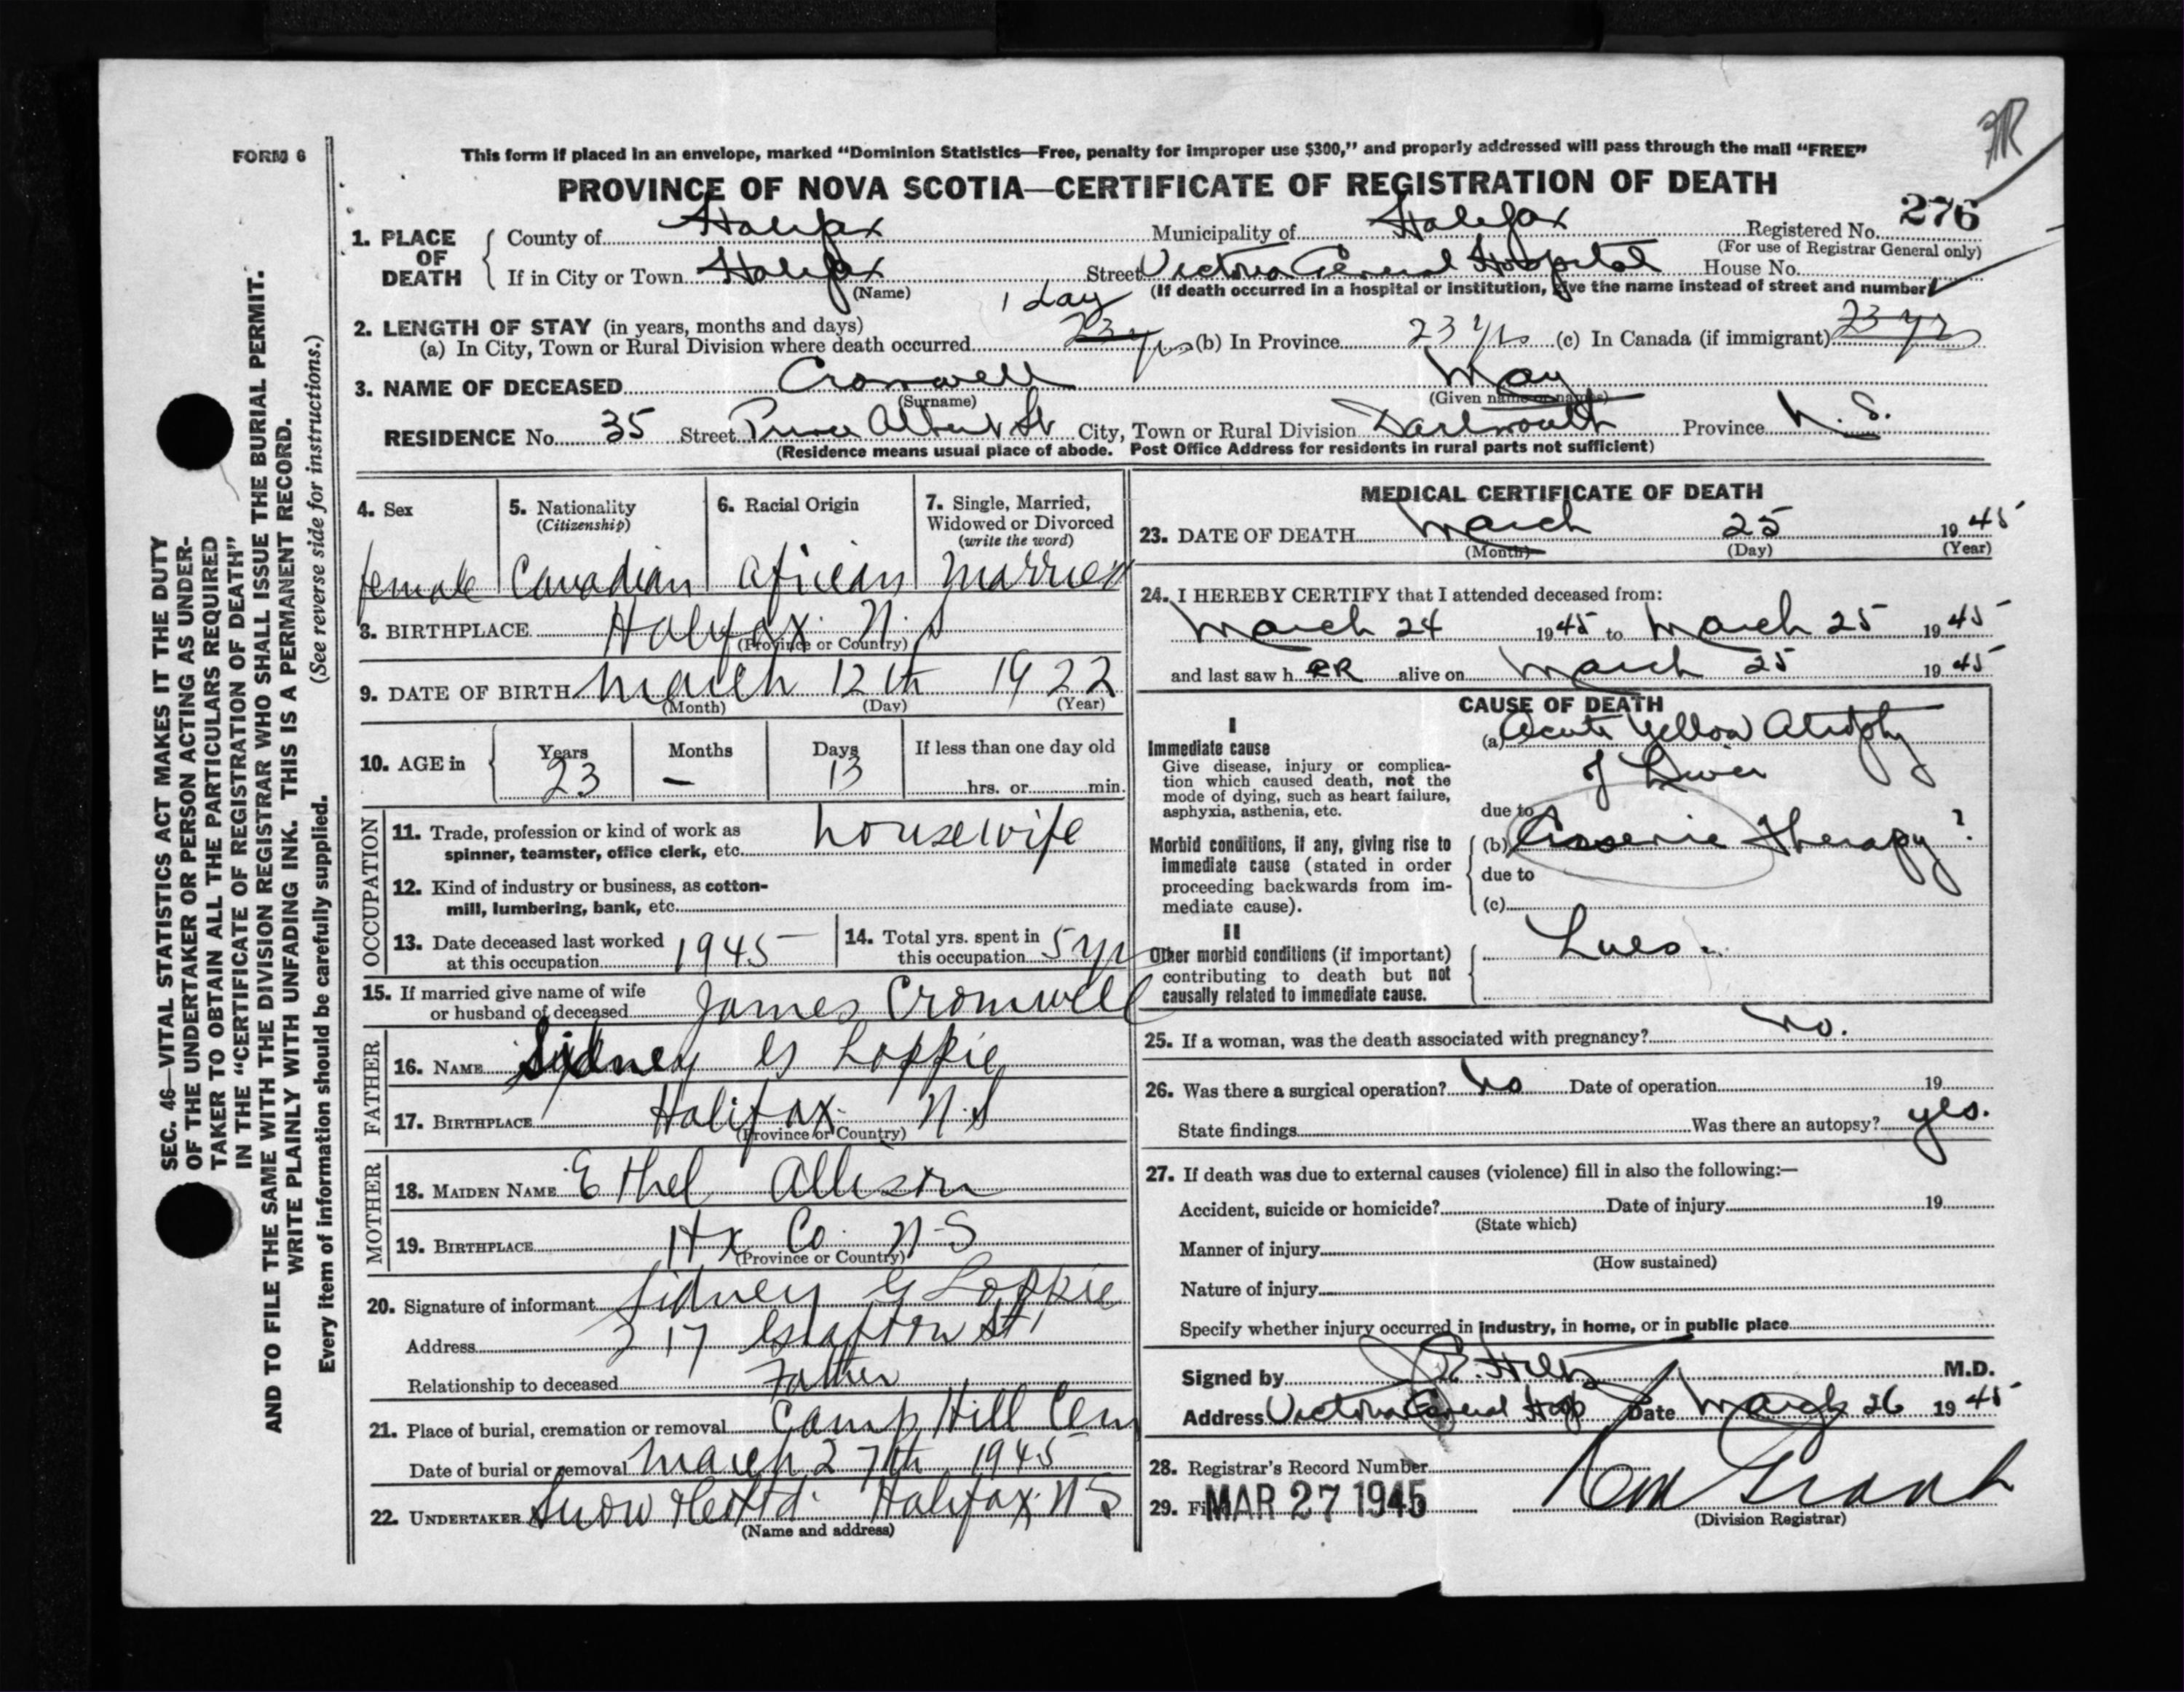 FORM 6
This form if placed in an envelope, marked “Dominion Statistics—Free, penalty for improper use $300,” and properly addressed will pass through the mail “FREE”
PROVINCE OF NOVA SCOTIA—CERTIFICATE OF REGISTRATION OF DEATH
276
1. PLACE OF DEATH
County of Halifax Municipality of Halifax Registered No.
(For use of Registrar General only)
If in City or Town Halifax Street Victoria General Hospital House No.
(Name) (If death occurred in a hospital or institution, give the name instead of street and number)
1 day
2. LENGTH OF STAY (in years, months and days)
(a) In City, Town or Rural Division where death occurred 23 yrs (b) In Province 23 yrs (c) In Canada (if immigrant) 23 yrs
3. NAME OF DECEASED Cromwell May
(Surname) (Given name or names)
RESIDENCE No. 35 Street Prince Albert St City, Town or Rural Division Dartmouth Province N. S.
(Residence means usual place of abode. Post Office Address for residents in rural parts not sufficient)
4. Sex
female
5. Nationality
(Citizenship)
Canadian
6. Racial Origin
African
7. Single, Married,
Widowed or Divorced
(write the word)
Married
8. BIRTHPLACE Halifax N. S
(Province or Country)
9. DATE OF BIRTH March 12th 1922
(Month) (Day) (Year)
10. AGE in
Years Months Days If less than one day old
23 — 13 hrs. or min.
OCCUPATION
11. Trade, profession or kind of work as
spinner, teamster, office clerk, etc. housewife
12. Kind of industry or business, as cotton-
mill, lumbering, bank, etc.
13. Date deceased last worked
at this occupation 1945
14. Total yrs. spent in
this occupation 5 yr
15. If married give name of wife
or husband of deceased James Cromwell
FATHER
16. NAME Sidney G Loppie
17. BIRTHPLACE Halifax N.S
(Province or Country)
MOTHER
18. MAIDEN NAME Ethel Allison
19. BIRTHPLACE Hx Co. N-S
(Province or Country)
20. Signature of informant Sidney G Loppie
Address 217 Grafton St
Relationship to deceased Father
21. Place of burial, cremation or removal Camp Hill Cem
Date of burial or removal March 27th 1945
22. UNDERTAKER Snow & Co Ltd. Halifax N S
(Name and address)
MEDICAL CERTIFICATE OF DEATH
23. DATE OF DEATH March 25 1945
(Month) (Day) (Year)
24. I HEREBY CERTIFY that I attended deceased from:
March 24 1945 to March 25 1945
and last saw her alive on March 25 1945
CAUSE OF DEATH
I
Immediate cause
Give disease, injury or complica-
tion which caused death, not the
mode of dying, such as heart failure,
asphyxia, asthenia, etc.
(a) Acute Yellow Atrophy
of Liver
due to
Morbid conditions, if any, giving rise to
immediate cause (stated in order
proceeding backwards from im-
mediate cause).
(b) Arsenic Therapy ?
due to
(c)
II
Other morbid conditions (if important)
contributing to death but not
causally related to immediate cause.
Lues.
25. If a woman, was the death associated with pregnancy? No.
26. Was there a surgical operation? No Date of operation 19
State findings Was there an autopsy? yes.
27. If death was due to external causes (violence) fill in also the following:—
Accident, suicide or homicide? Date of injury 19
(State which)
Manner of injury
(How sustained)
Nature of injury
Specify whether injury occurred in industry, in home, or in public place
Signed by M.D.
Address Victoria General Hosp Date March 26 1945
28. Registrar's Record Number
29. Filed MAR 27 1945 Grant
(Division Registrar)
SEC. 46—VITAL STATISTICS ACT MAKES IT THE DUTY
OF THE UNDERTAKER OR PERSON ACTING AS UNDER-
TAKER TO OBTAIN ALL THE PARTICULARS REQUIRED
IN THE “CERTIFICATE OF REGISTRATION OF DEATH”
AND TO FILE THE SAME WITH THE DIVISION REGISTRAR WHO SHALL ISSUE THE BURIAL PERMIT.
WRITE PLAINLY WITH UNFADING INK. THIS IS A PERMANENT RECORD.
Every item of information should be carefully supplied. (See reverse side for instructions.)